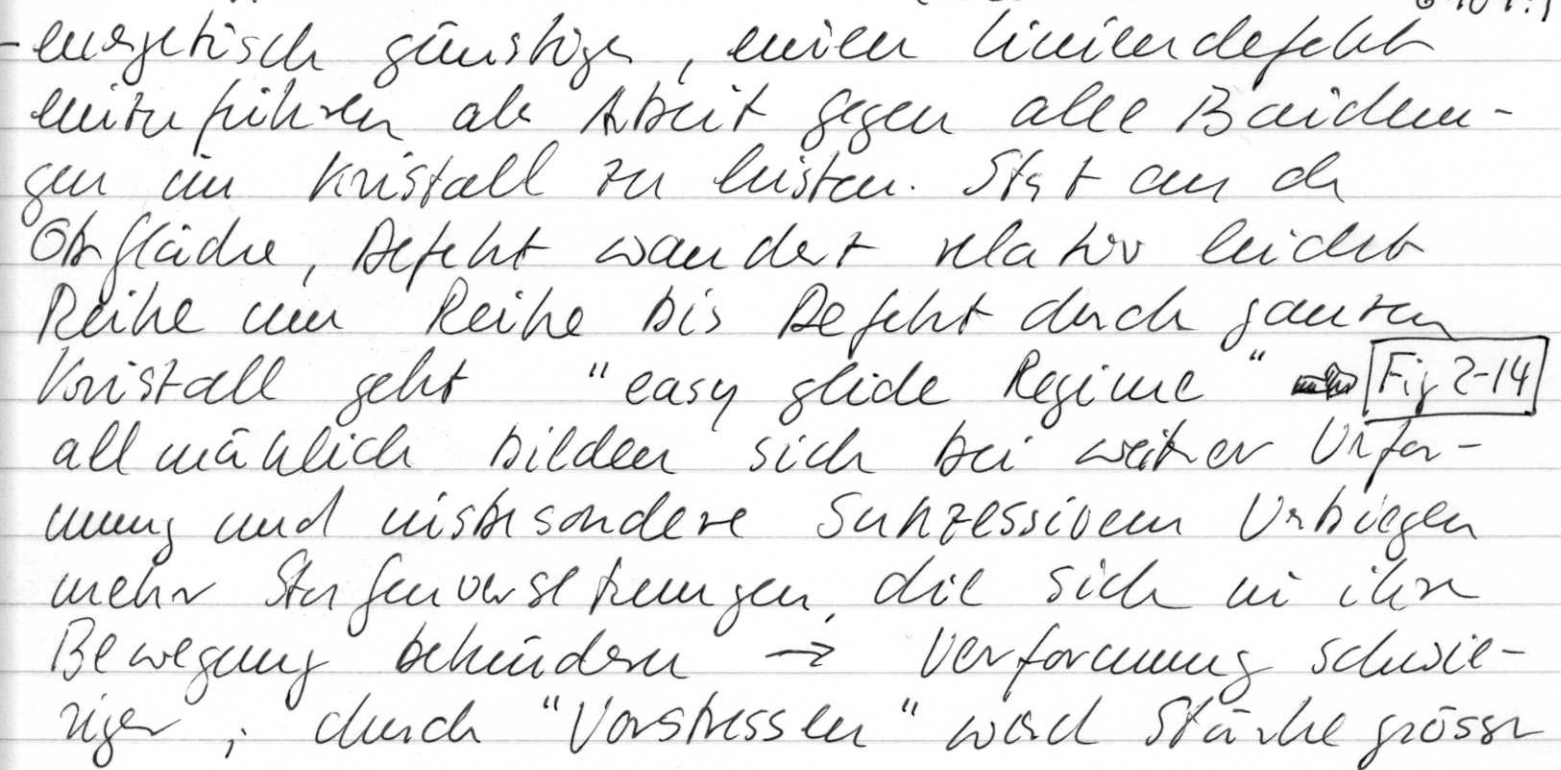 energetisch günstiger, einen Liniendefekt
einzuführen als Arbeit gegen alle Bindun-
gen im Kristall zu leisten. Start an der
Oberfläche, Defekt wandert relativ leicht
Reihe um Reihe bis Defekt durch ganzen
Kristall geht "easy glide Regime" Fig 2-14
allmählich bilden sich bei weiterer Verfor-
mung und insbesondere sukzessivem Verbiegen
mehr Stufenversetzungen, die sich in ihrer
Bewegung behindern → Verformung schwie-
riger, durch "Vorstressen" wird Stärke grösser